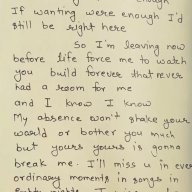 enough
If wanting were enough I'd
still be right here
So I'm leaving now
before life force me to watch
you build forever that never
had a room for me
and I know I know
My absence won't shake your
world or bother you much
but yours yours is gonna
break me. I'll miss u in every
ordinary moments in songs in